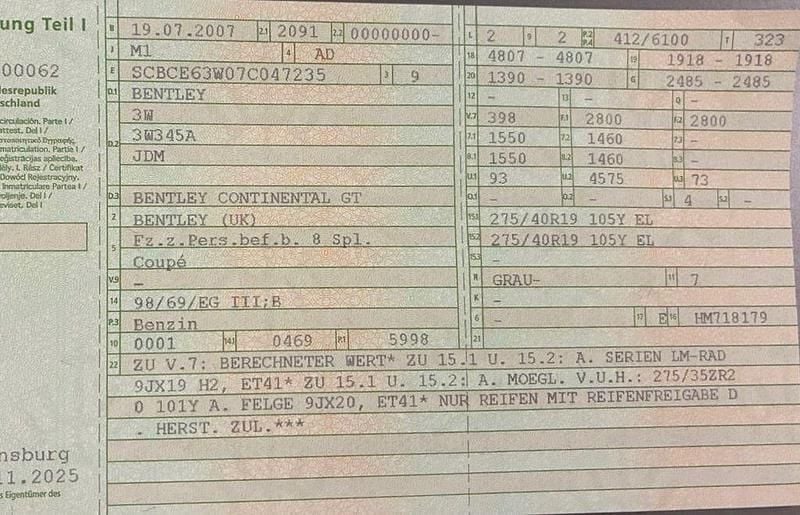 ung Teil I
00062
desrepublik
schland
B 19.07.2007 2.1 2091 2.2 00000000-
J M1 4 AD
E SCBCE63W07C047235 3 9
D.1 BENTLEY
3W
D.2 3W345A
JDM
D.3 BENTLEY CONTINENTAL GT
2 BENTLEY (UK)
5 Fz.z.Pers.bef.b. 8 Spl.
Coupé
V.9 –
14 98/69/EG III;B
P.3 Benzin
10 0001 14.1 0469 P.1 5998
L 2 9 2 P.2 P.4 412/6100 T 323
18 4807 - 4807 19 1918 - 1918
20 1390 - 1390 G 2485 - 2485
12 – 13 – Q –
V.7 398 F.1 2800 F.2 2800
7.1 1550 7.2 1460 7.3 –
8.1 1550 8.2 1460 8.3 –
U.1 93 U.2 4575 U.3 73
O.1 – O.2 – S.1 4 S.2 –
15.1 275/40R19 105Y EL
15.2 275/40R19 105Y EL
15.3 –
R GRAU- 11 7
K –
6 – 17 E 16 HM718179
21
22 ZU V.7: BERECHNETER WERT* ZU 15.1 U. 15.2: A. SERIEN LM-RAD
9JX19 H2, ET41* ZU 15.1 U. 15.2: A. MOEGL. V.U.H.: 275/35ZR2
0 101Y A. FELGE 9JX20, ET41* NUR REIFEN MIT REIFENFREIGABE D
. HERST. ZUL.***
nsburg
11.2025
s Eigentümer des